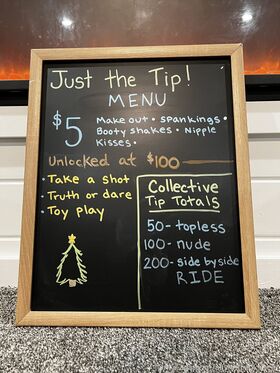 Just the Tip!
MENU
$5 Make out • spankings •
Booty shakes • Nipple
Kisses •
Unlocked at $100
• Take a shot
• Truth or dare
• Toy play
Collective
Tip Totals
50 - topless
100 - nude
200 - side by side
RIDE